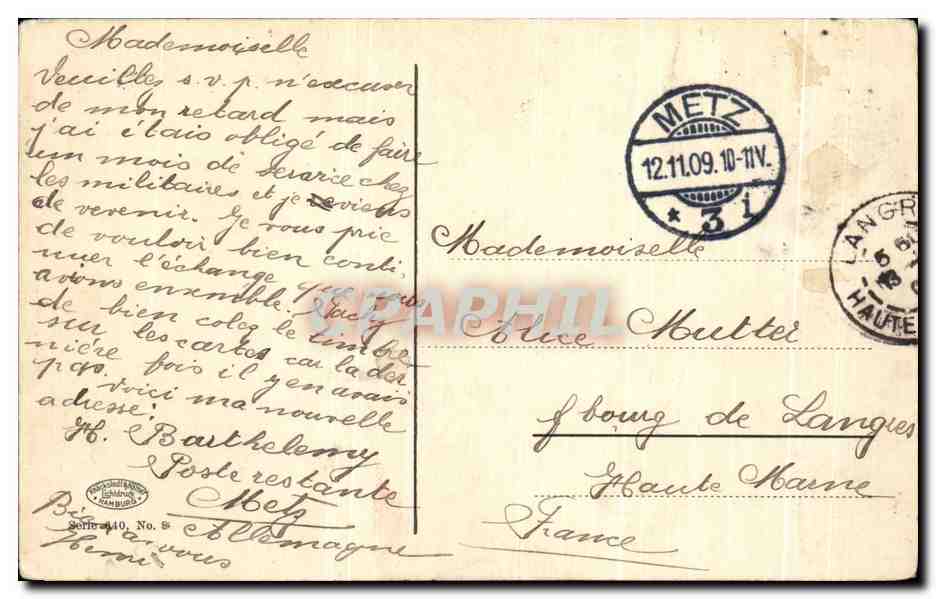 Mademoiselle
Veuilles s. v. p. m'excuser
de mon retard mais
j'ai étais obligé de faire
un mois de service chez
les militaires et je reviens
de revenir. Je vous prie
de vouloir bien conti-
nuer l'échange que nous
avions ensemble. Tachez
de bien colez le timbre
sur les cartes car la der
nière fois il y en avais
pas. Voici ma nouvelle
adresse:
H. Barthelemy
Poste restante
Metz
Allemagne
Bien à vous
Henri
Knackstedt & Näther
Lichtdruck
HAMBURG
Serie 640, No. 8
METZ
12.11.09. 10-11V.
* 3 i
LANGR
HAUTE
Mademoiselle
Alice Mutter
f bourg de Langres
Haute Marne
France
CPAPHIL